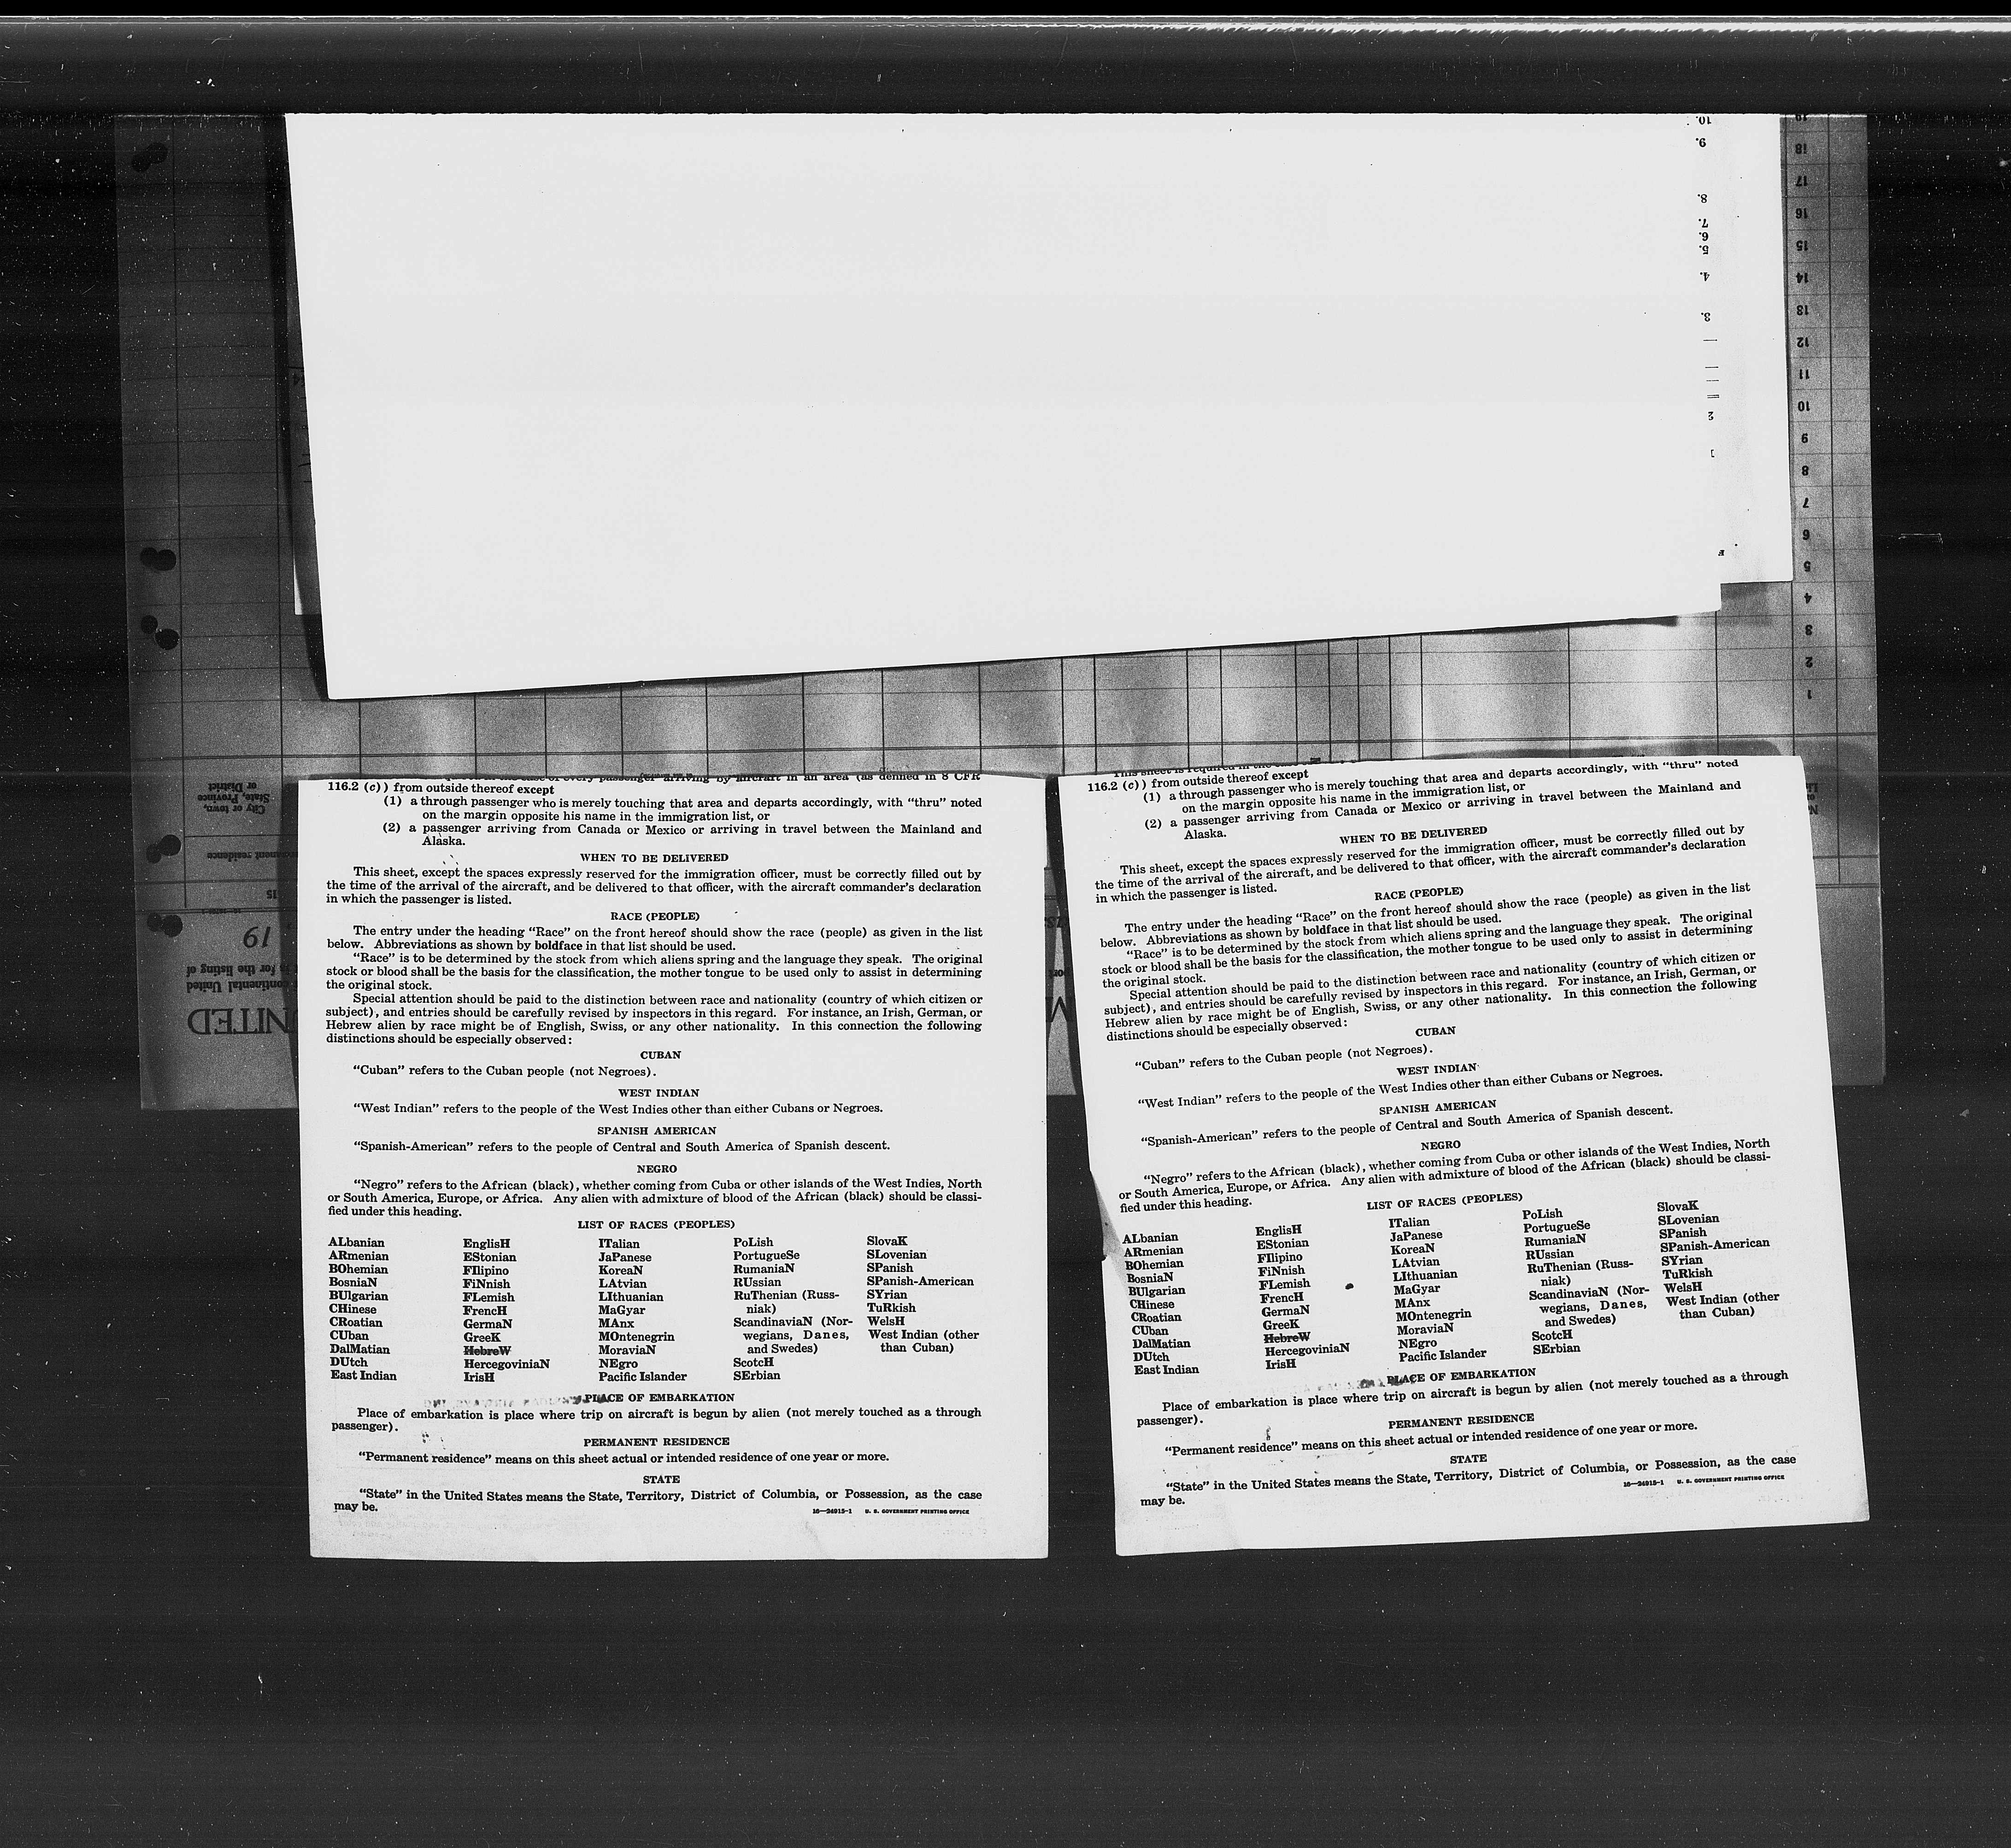 10.
9.
8.
7.
6.
5.
4.
3.
2
1
19
18
17
16
15
14
13
12
11
10
9
8
7
6
5
4
3
2
1
City or town,
State, Province
or District
15
19
for the listing of
continental United
UNITED
116.2 (c)) from outside thereof except
(1) a through passenger who is merely touching that area and departs accordingly, with “thru” noted
on the margin opposite his name in the immigration list, or
(2) a passenger arriving from Canada or Mexico or arriving in travel between the Mainland and
Alaska.
WHEN TO BE DELIVERED
This sheet, except the spaces expressly reserved for the immigration officer, must be correctly filled out by
the time of the arrival of the aircraft, and be delivered to that officer, with the aircraft commander’s declaration
in which the passenger is listed.
RACE (PEOPLE)
The entry under the heading “Race” on the front hereof should show the race (people) as given in the list
below. Abbreviations as shown by boldface in that list should be used.
“Race” is to be determined by the stock from which aliens spring and the language they speak. The original
stock or blood shall be the basis for the classification, the mother tongue to be used only to assist in determining
the original stock.
Special attention should be paid to the distinction between race and nationality (country of which citizen or
subject), and entries should be carefully revised by inspectors in this regard. For instance, an Irish, German, or
Hebrew alien by race might be of English, Swiss, or any other nationality. In this connection the following
distinctions should be especially observed:
CUBAN
“Cuban” refers to the Cuban people (not Negroes).
WEST INDIAN
“West Indian” refers to the people of the West Indies other than either Cubans or Negroes.
SPANISH AMERICAN
“Spanish-American” refers to the people of Central and South America of Spanish descent.
NEGRO
“Negro” refers to the African (black), whether coming from Cuba or other islands of the West Indies, North
or South America, Europe, or Africa. Any alien with admixture of blood of the African (black) should be classi-
fied under this heading.
LIST OF RACES (PEOPLES)
ALbanian
ARmenian
BOhemian
BosniaN
BUlgarian
CHinese
CRoatian
CUban
DalMatian
DUtch
East Indian
EnglisH
EStonian
FIlipino
FiNnish
FLemish
FrencH
GermaN
GreeK
HebreW
HercegoviniaN
IrisH
ITalian
JaPanese
KoreaN
LAtvian
LIthuanian
MaGyar
MAnx
MOntenegrin
MoraviaN
NEgro
Pacific Islander
PoLish
PortugueSe
RumaniaN
RUssian
RuThenian (Russ-
niak)
ScandinaviaN (Nor-
wegians, Danes,
and Swedes)
ScotcH
SErbian
SlovaK
SLovenian
SPanish
SPanish-American
SYrian
TuRkish
WelsH
West Indian (other
than Cuban)
PLACE OF EMBARKATION
Place of embarkation is place where trip on aircraft is begun by alien (not merely touched as a through
passenger).
PERMANENT RESIDENCE
“Permanent residence” means on this sheet actual or intended residence of one year or more.
STATE
“State” in the United States means the State, Territory, District of Columbia, or Possession, as the case
may be.
16—24915-1 U. S. GOVERNMENT PRINTING OFFICE
This sheet is required in the
116.2 (c)) from outside thereof except
(1) a through passenger who is merely touching that area and departs accordingly, with “thru” noted
on the margin opposite his name in the immigration list, or
(2) a passenger arriving from Canada or Mexico or arriving in travel between the Mainland and
Alaska.
WHEN TO BE DELIVERED
This sheet, except the spaces expressly reserved for the immigration officer, must be correctly filled out by
the time of the arrival of the aircraft, and be delivered to that officer, with the aircraft commander’s declaration
in which the passenger is listed.
RACE (PEOPLE)
The entry under the heading “Race” on the front hereof should show the race (people) as given in the list
below. Abbreviations as shown by boldface in that list should be used.
“Race” is to be determined by the stock from which aliens spring and the language they speak. The original
stock or blood shall be the basis for the classification, the mother tongue to be used only to assist in determining
the original stock.
Special attention should be paid to the distinction between race and nationality (country of which citizen or
subject), and entries should be carefully revised by inspectors in this regard. For instance, an Irish, German, or
Hebrew alien by race might be of English, Swiss, or any other nationality. In this connection the following
distinctions should be especially observed:
CUBAN
“Cuban” refers to the Cuban people (not Negroes).
WEST INDIAN
“West Indian” refers to the people of the West Indies other than either Cubans or Negroes.
SPANISH AMERICAN
“Spanish-American” refers to the people of Central and South America of Spanish descent.
NEGRO
“Negro” refers to the African (black), whether coming from Cuba or other islands of the West Indies, North
or South America, Europe, or Africa. Any alien with admixture of blood of the African (black) should be classi-
fied under this heading.
LIST OF RACES (PEOPLES)
ALbanian
ARmenian
BOhemian
BosniaN
BUlgarian
CHinese
CRoatian
CUban
DalMatian
DUtch
East Indian
EnglisH
EStonian
FIlipino
FiNnish
FLemish
FrencH
GermaN
GreeK
HebreW
HercegoviniaN
IrisH
ITalian
JaPanese
KoreaN
LAtvian
LIthuanian
MaGyar
MAnx
MOntenegrin
MoraviaN
NEgro
Pacific Islander
PoLish
PortugueSe
RumaniaN
RUssian
RuThenian (Russ-
niak)
ScandinaviaN (Nor-
wegians, Danes,
and Swedes)
ScotcH
SErbian
SlovaK
SLovenian
SPanish
SPanish-American
SYrian
TuRkish
WelsH
West Indian (other
than Cuban)
PLACE OF EMBARKATION
Place of embarkation is place where trip on aircraft is begun by alien (not merely touched as a through
passenger).
PERMANENT RESIDENCE
“Permanent residence” means on this sheet actual or intended residence of one year or more.
STATE
“State” in the United States means the State, Territory, District of Columbia, or Possession, as the case
may be.
16—24915-1 U. S. GOVERNMENT PRINTING OFFICE